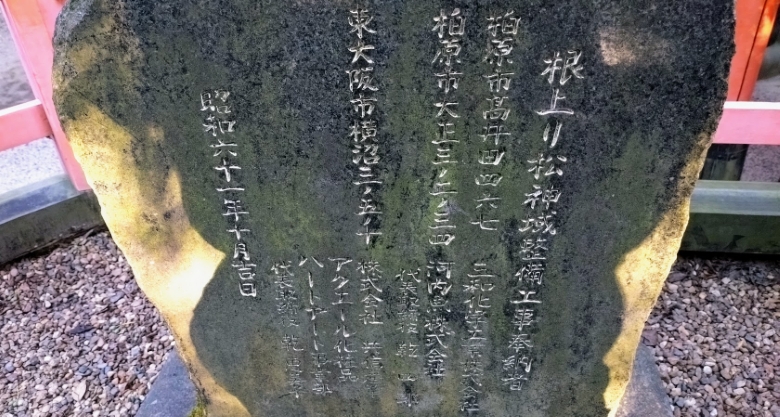 根上り松神域整備工事奉納者
柏原市高井田四六七
三和化学工業株式会社
柏原市大正三ノ二ノ三四
河内 株式会社
代表取締役 乾
東大阪市横沼三ノ五ノ十
株式会社
アクエール化粧
ハートアート
代表取締役 乾
昭和六十一年十月吉日